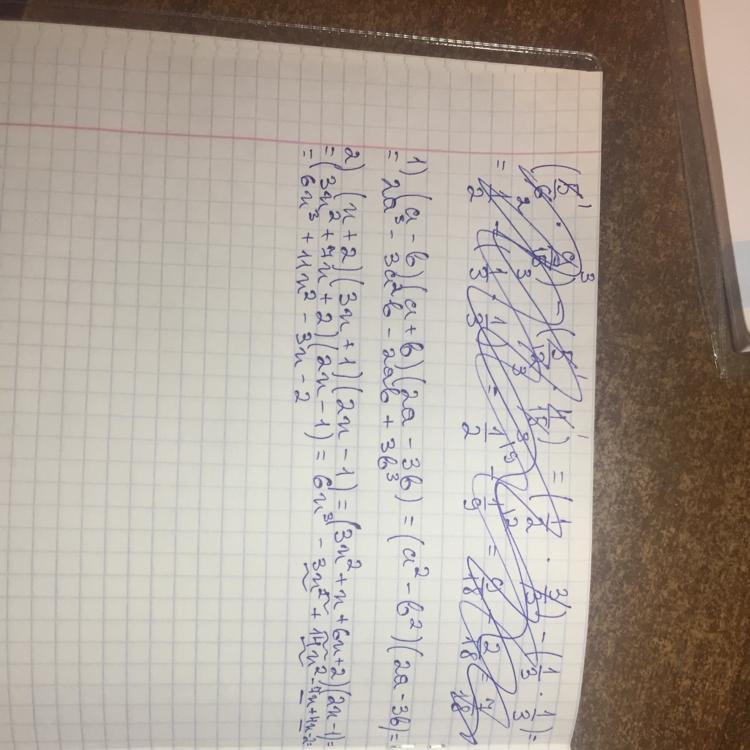 (5/6 · 9/15) - (5/12 · 4/15) = (1/2 · 3/3) - (1/3 · 1/3) =
= 1/2 - (1/3 · 1/3) = 1/2 - 1/9 = 9/18 - 2/18 = 7/18
1) (a - b)(a + b)(2a - 3b) = (a² - b²)(2a - 3b) =
= 2a³ - 3a²b - 2ab + 3b³
2) (x + 2)(3x + 1)(2x - 1) = (3x² + x + 6x + 2)(2x - 1) =
= (3x² + 7x + 2)(2x - 1) = 6x³ - 3x² + 14x² - 7x + 4x - 2 =
= 6x³ + 11x² - 3x - 2